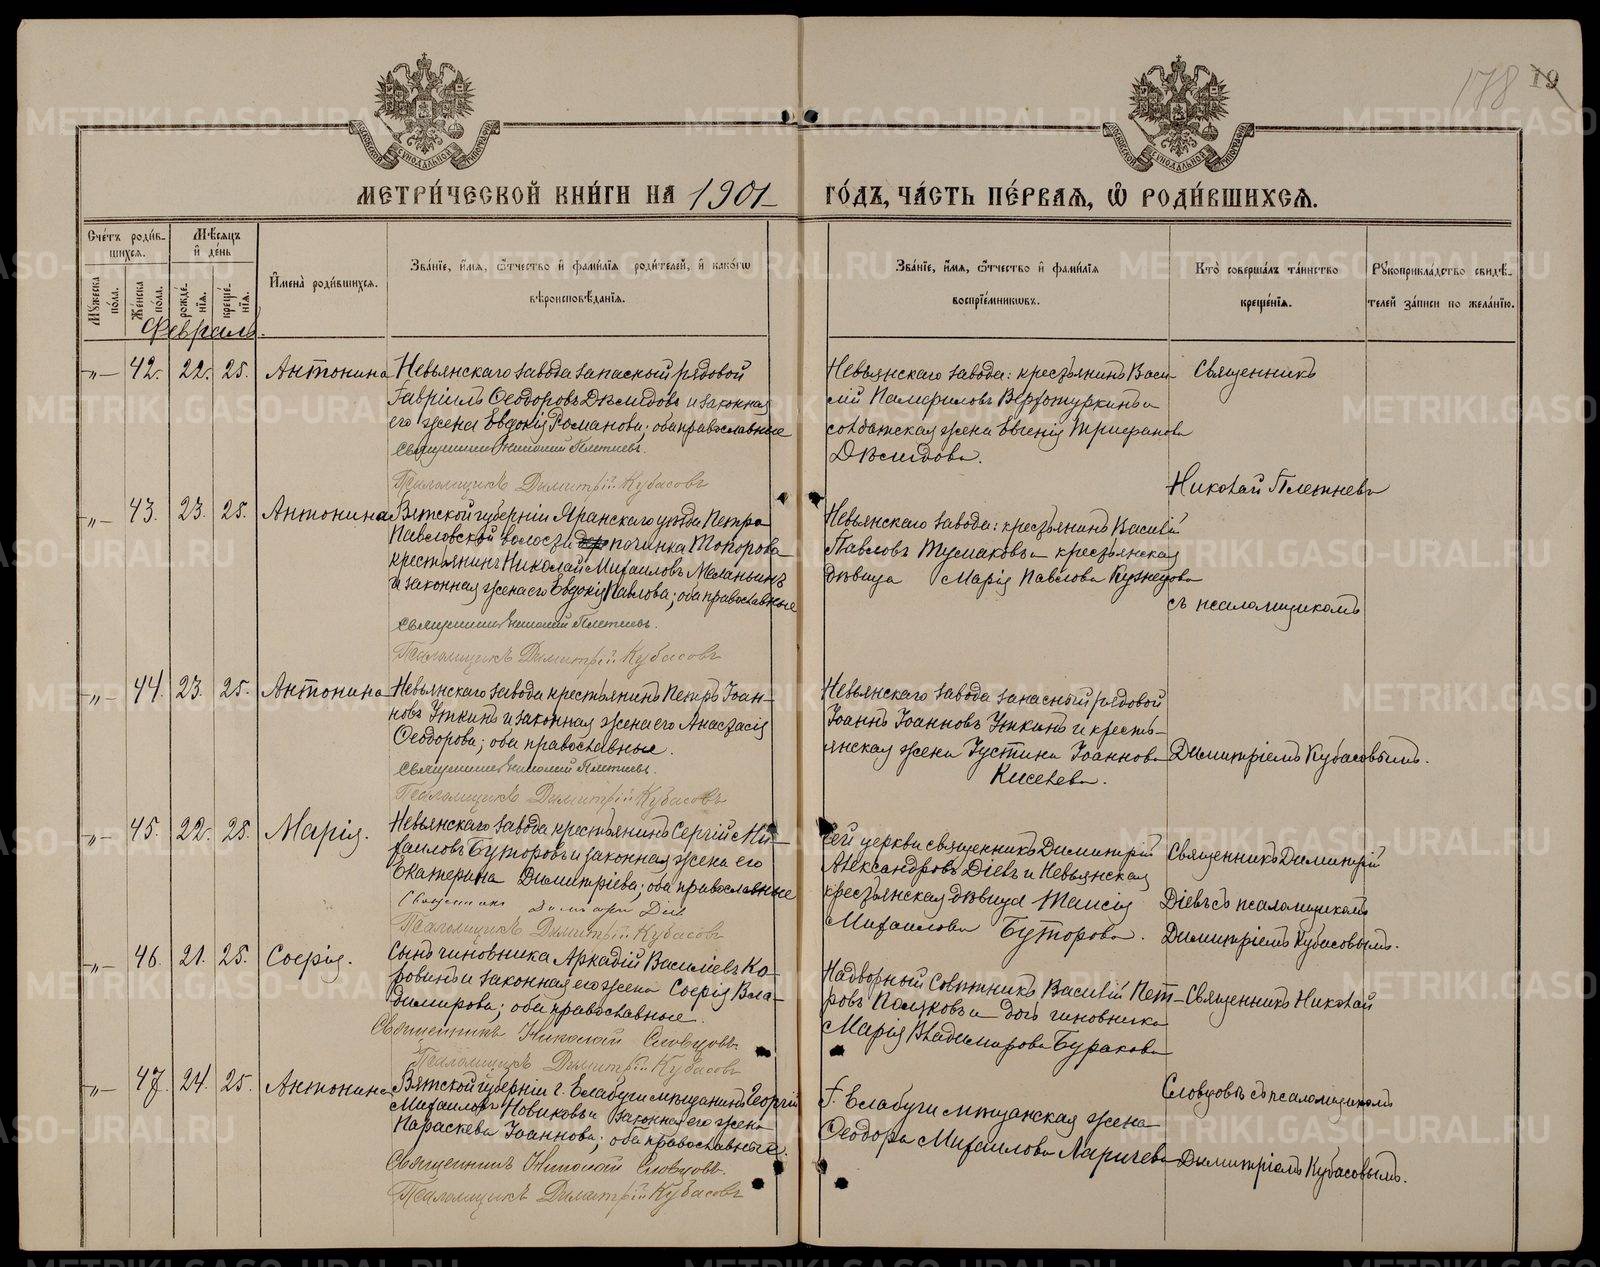 178 19
МЕТРИ́ЧЕСКОЙ КНИ́ГИ НА 1901 ГО́ДЪ, ЧА́СТЬ ПЕ́РВАѦ, Ѽ РОДИ́ВШИХСѦ.
Сче́тъ роди́в-
шихсѧ.
Мѣ́сѧцъ
и҆ де́нь
Мꙋ́жеска
по́ла.
Же́нска
по́ла.
рожде́-
нїѧ.
креще́-
нїѧ.
И҆мена̀ роди́вшихсѧ.
Зва́нїе, и҆́мѧ, ѻ҆́тчество и҆ фами́лїѧ роди́телей, и҆ како́гѡ
вѣроисповѣ́данїѧ.
Зва́нїе, и҆́мѧ, ѻ҆́тчество и҆ фами́лїѧ
воспрїе́мникѡвъ.
Кто̀ соверша́лъ та́инство
креще́нїѧ.
Рꙋкоприкла́дство свидѣ́-
телей за́писи по жела́нїю.
Февраль.
-„- 42. 22. 25. Антонина
Невьянскаго завода запасный рядовой
Гавріилъ Ѳеодоровъ Дѣмидовъ и законная
его жена Евдокія Романова; оба православные
Священникъ Николай Плетневъ.
Псаломщикъ Димитрій Кубасовъ
Невьянскаго завода: крестьянинъ Васи-
лій Памфиловъ Верхотуркинъ и
солдатская жена Евгенія Трифанова
Дѣмидова.
Священникъ
Николай Плетневъ
съ псаломщикомъ
Димитріемъ Кубасовымъ.
-„- 43. 23. 25. Антонина
Вятской губерніи Яранскаго уѣзда Петро-
Павловской волости починка Топорова
крестьянинъ Николай Михаиловъ Меланьинъ
и законная жена его Евдокія Павлова; оба православные
Священникъ Николай Плетневъ.
Псаломщикъ Димитрій Кубасовъ
Невьянскаго завода: крестьянинъ Василій
Павловъ Тумаковъ и крестьянская
дѣвица Марія Павлова Кузнецова
-„- 44. 23. 25. Антонина
Невьянскаго завода крестьянинъ Петръ Іоан-
новъ Уткинъ и законная жена его Анастасія
Ѳеодорова; оба православные.
Священникъ Николай Плетневъ.
Псаломщикъ Димитрій Кубасовъ
Невьянскаго завода запасный рядовой
Іоаннъ Іоанновъ Уткинъ и кресть-
янская жена Іустина Іоаннова
Киселева.
-„- 45. 22. 25. Марія.
Невьянскаго завода крестьянинъ Сергій Ми-
хаиловъ Буторовъ и законная жена его
Екатерина Димитріева; оба православные
Священникъ Димитрій Діевъ
Псаломщикъ Димитрій Кубасовъ
Сей церкви священникъ Димитрій
Александровъ Діевъ и Невьянская
крестьянская дѣвица Таисія
Михаилова Буторова.
Священникъ Димитрій
Діевъ съ псаломщикомъ
Димитріемъ Кубасовымъ.
-„- 46. 21. 25. Софія.
Сынъ чиновника Аркадій Василіевъ Ко-
ровинъ и законная его жена Софія Вла-
димирова; оба православные.
Священникъ Николай Словцовъ.
Псаломщикъ Димитрій Кубасовъ
Надворный Совѣтникъ Василій Пет-
ровъ Полуковъ и дочь чиновника
Марія Владимирова Буракова
Священникъ Николай
Словцовъ съ псаломщикомъ
Димитріемъ Кубасовымъ.
-„- 47. 24. 25. Антонина
Вятской губерніи г. Елабуги мѣщанинъ Георгій
Михаиловъ Новиковъ и законная его жена
Параскева Іоаннова; оба православные.
Священникъ Николай Словцовъ.
Псаломщикъ Димитрій Кубасовъ
г. Елабуги мѣщанская жена
Ѳеодора Михаилова Ларичева
METRIKI.GASO-URAL.RU